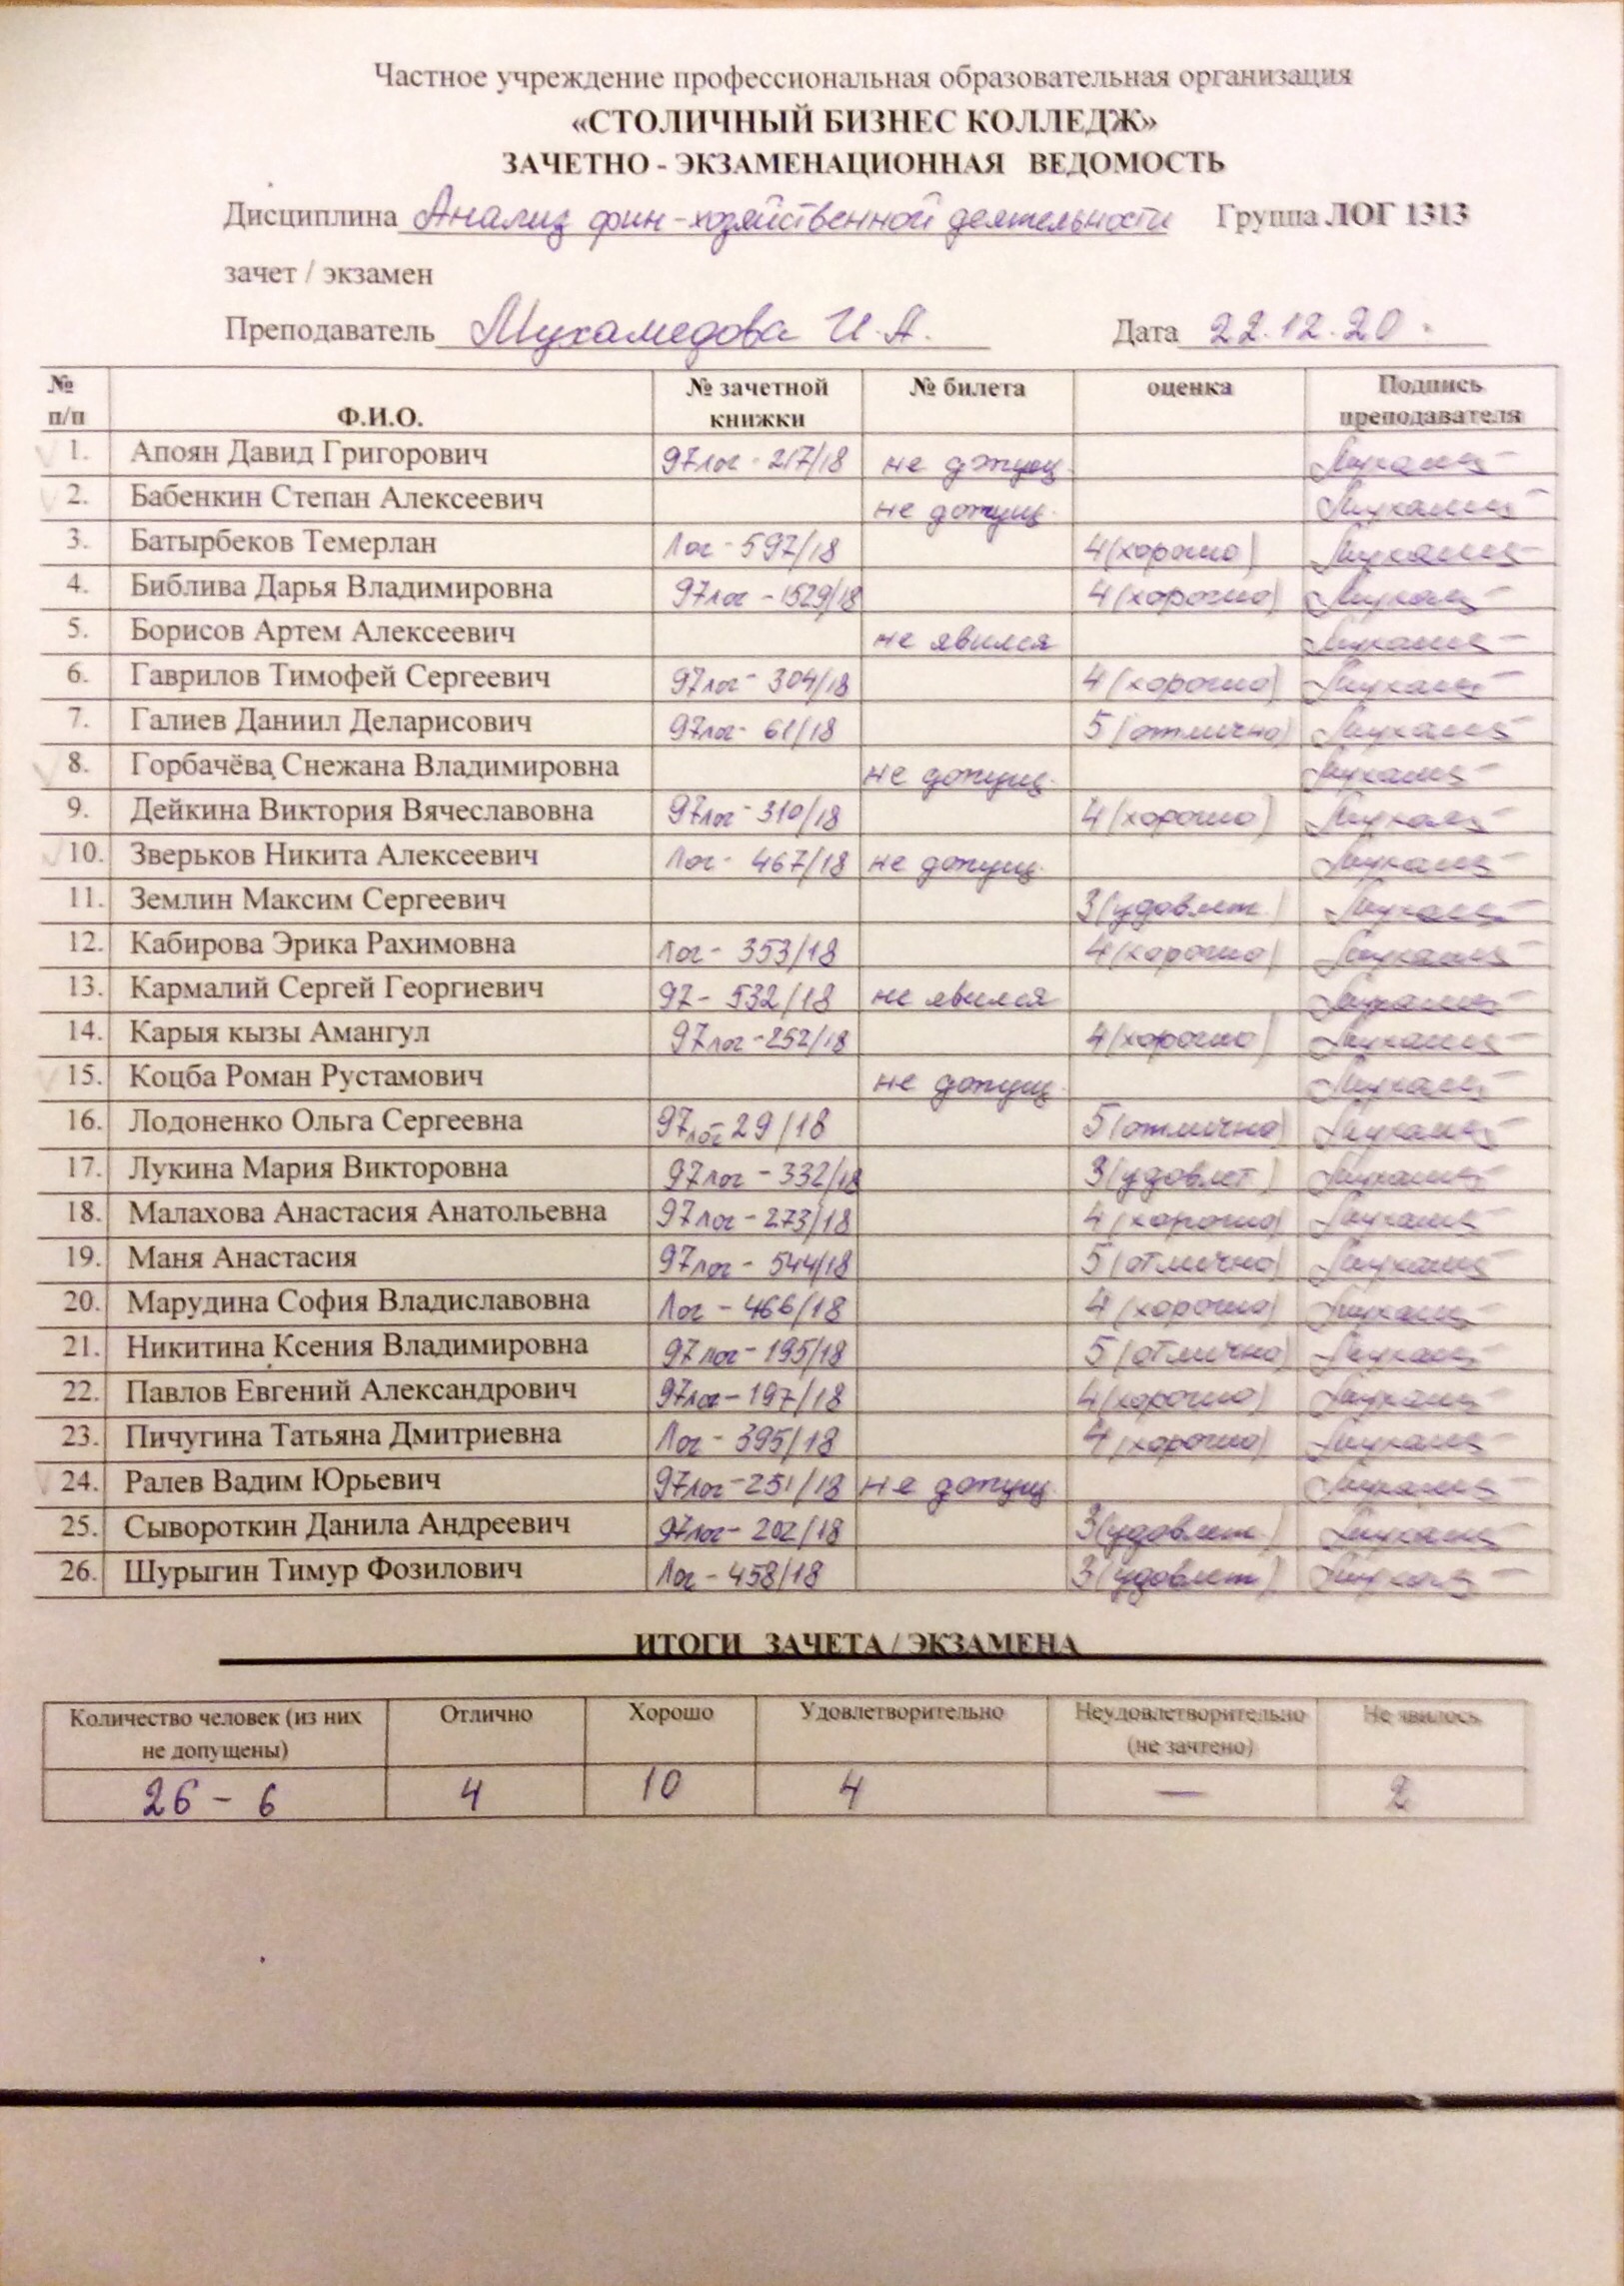 Частное учреждение профессиональная образовательная организация
«СТОЛИЧНЫЙ БИЗНЕС КОЛЛЕДЖ»
ЗАЧЕТНО - ЭКЗАМЕНАЦИОННАЯ ВЕДОМОСТЬ
Дисциплина Анализ фин-хозяйственной деятельности Группа ЛОГ 1313
зачет / экзамен
Преподаватель Мухамедова И.А. Дата 22.12.20
№ п/п Ф.И.О. № зачетной книжки № билета оценка Подпись преподавателя
1. Апоян Давид Григорович 97лог-217/18 не допущ.
2. Бабенкин Степан Алексеевич не допущ.
3. Батырбеков Темерлан Лог-597/18 4(хорошо)
4. Библива Дарья Владимировна 97лог-1529/18 4(хорошо)
5. Борисов Артем Алексеевич не явился
6. Гаврилов Тимофей Сергеевич 97лог-304/18 4(хорошо)
7. Галиев Даниил Деларисович 97лог-61/18 5(отлично)
8. Горбачёва Снежана Владимировна не допущ.
9. Дейкина Виктория Вячеславовна 97лог-310/18 4(хорошо)
10. Зверьков Никита Алексеевич Лог-467/18 не допущ.
11. Землин Максим Сергеевич 3(удовлет.)
12. Кабирова Эрика Рахимовна Лог-353/18 4(хорошо)
13. Кармалий Сергей Георгиевич 97-532/18 не явился
14. Карыя кызы Амангул 97лог-252/18 4(хорошо)
15. Коцба Роман Рустамович не допущ.
16. Лодоненко Ольга Сергеевна 97лог-29/18 5(отлично)
17. Лукина Мария Викторовна 97лог-332/18 3(удовлет.)
18. Малахова Анастасия Анатольевна 97лог-273/18 4(хорошо)
19. Маня Анастасия 97лог-544/18 5(отлично)
20. Марудина София Владиславовна Лог-466/18 4(хорошо)
21. Никитина Ксения Владимировна 97лог-195/18 5(отлично)
22. Павлов Евгений Александрович 97лог-197/18 4(хорошо)
23. Пичугина Татьяна Дмитриевна Лог-395/18 4(хорошо)
24. Ралев Вадим Юрьевич 97лог-251/18 не допущ.
25. Сывороткин Данила Андреевич 97лог-202/18 3(удовлет.)
26. Шурыгин Тимур Фозилович Лог-458/18 3(удовлет.)
ИТОГИ ЗАЧЕТА / ЭКЗАМЕНА
Количество человек (из них не допущены) Отлично Хорошо Удовлетворительно Неудовлетворительно (не зачтено) Не явилось
26 - 6 4 10 4 — 2